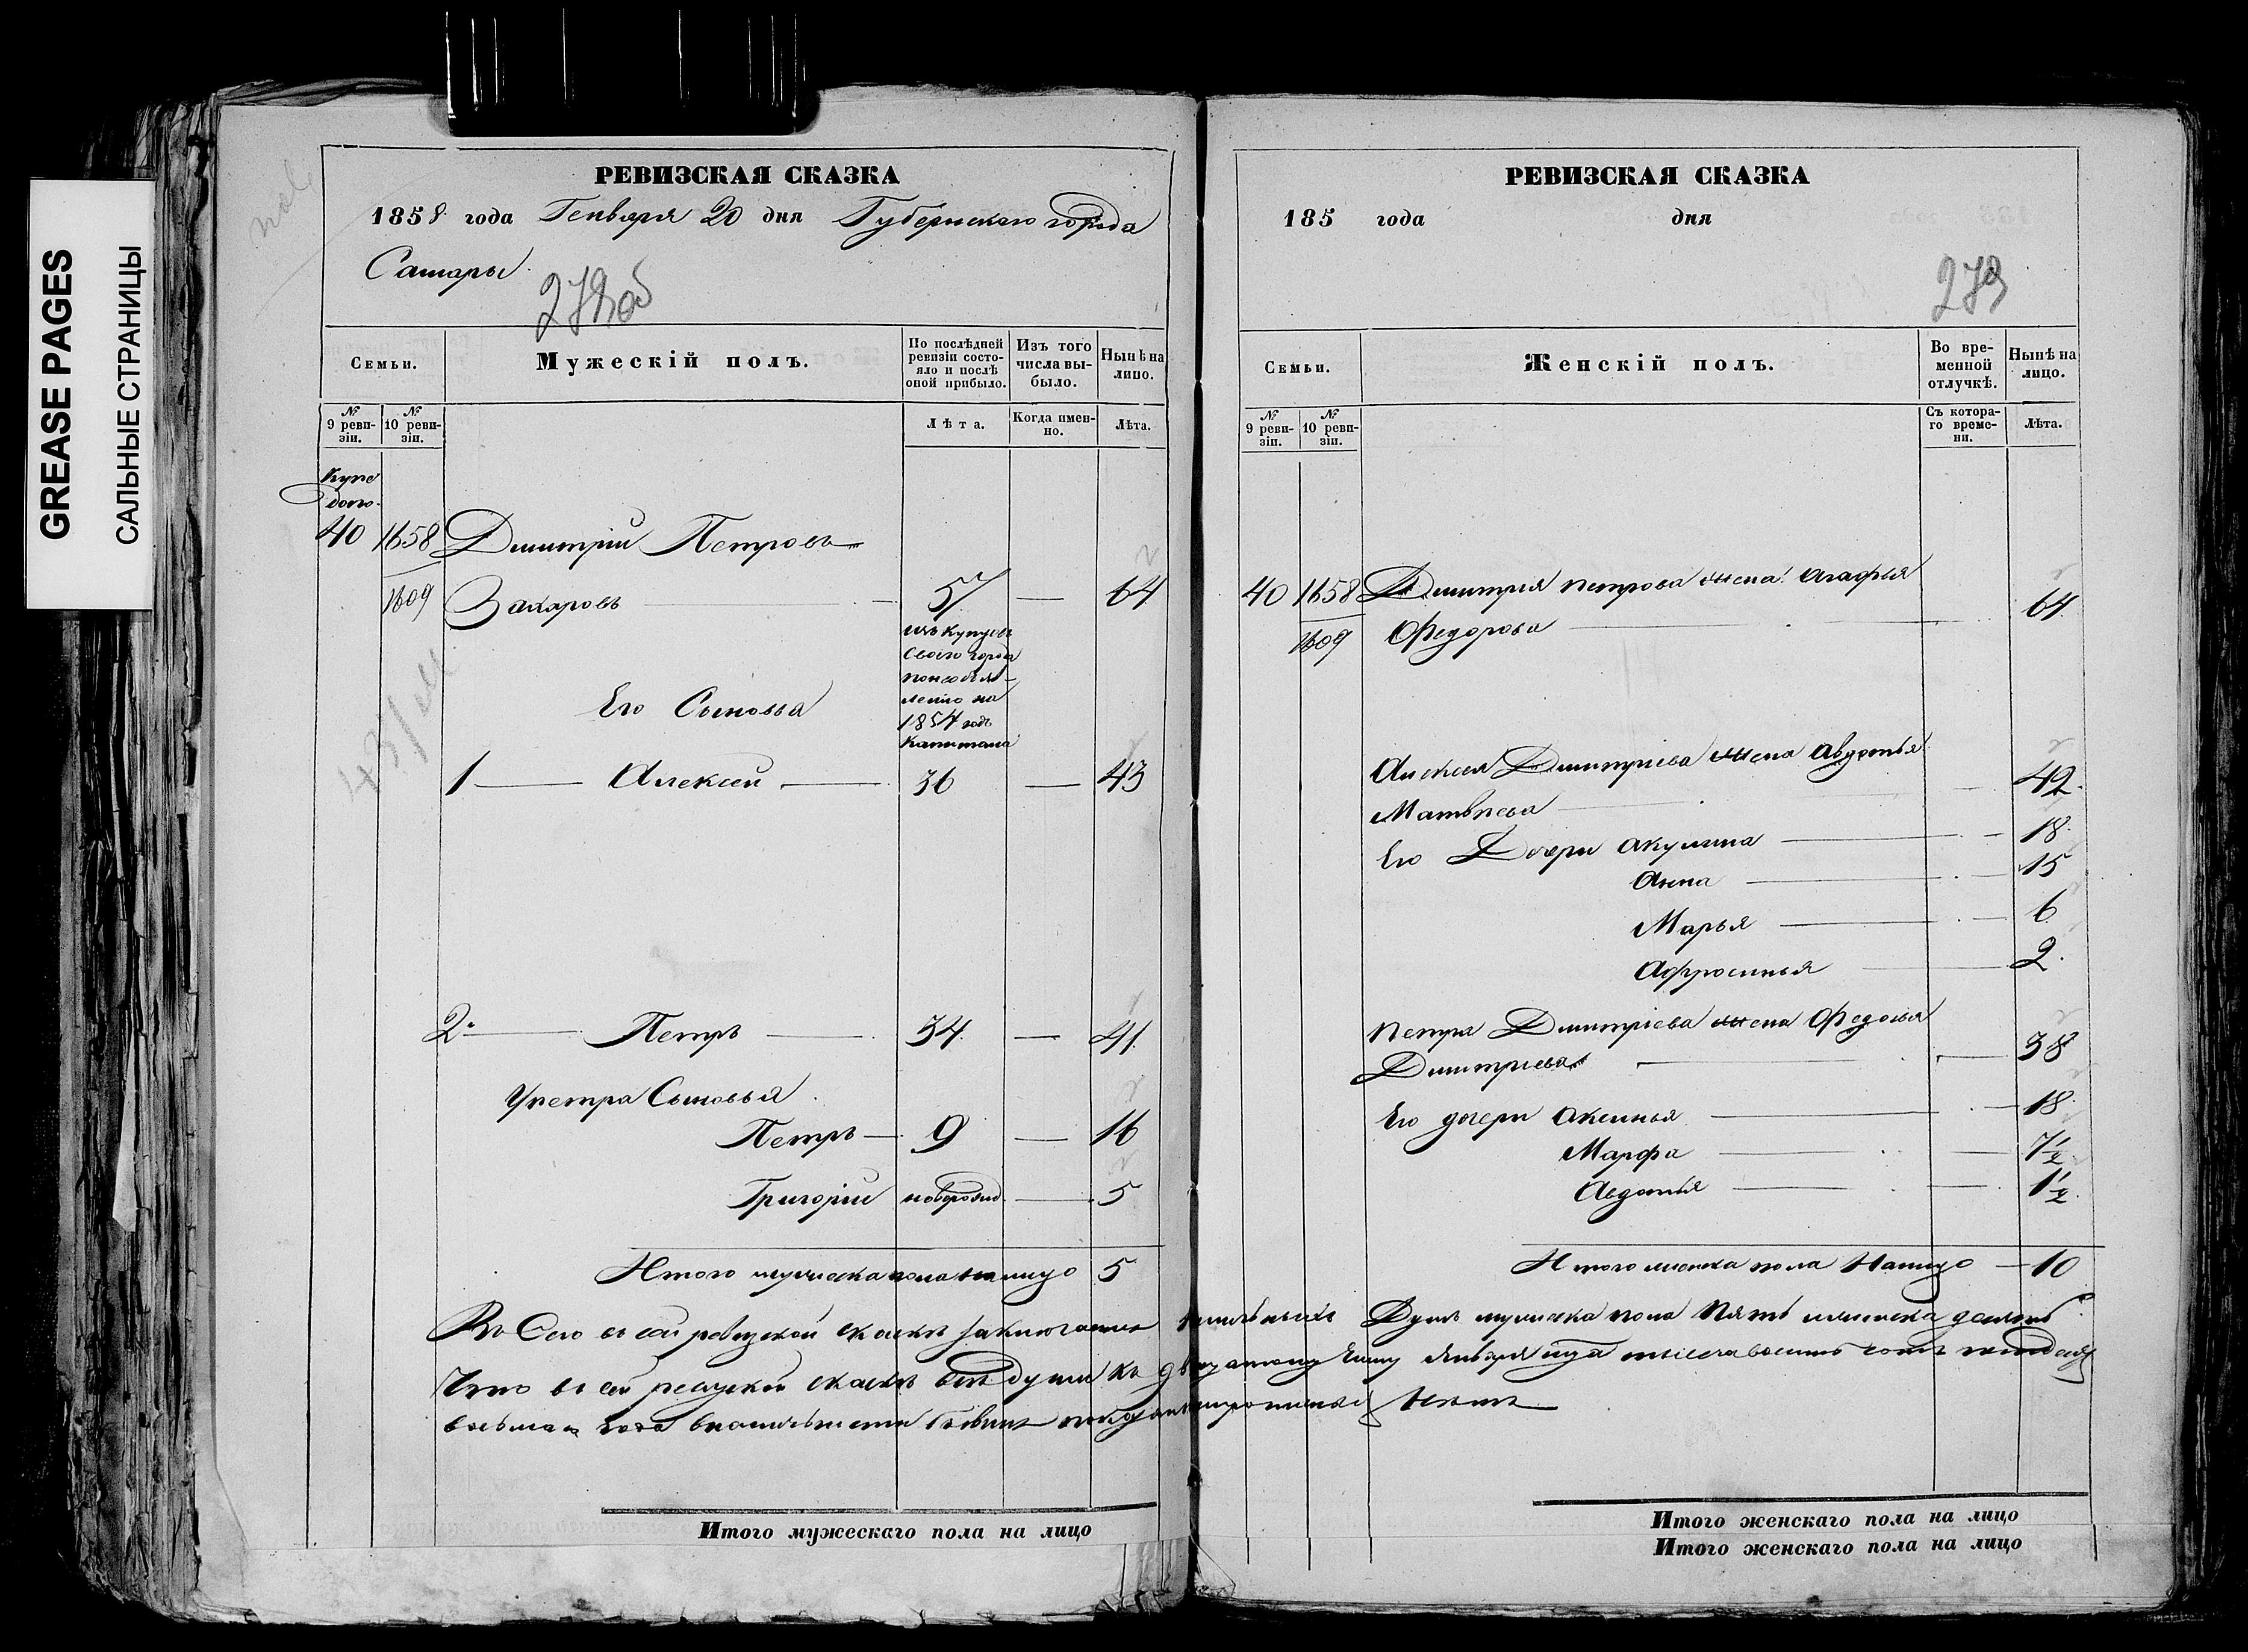 GREASE PAGES
САЛЬНЫЕ СТРАНИЦЫ
РЕВИЗСКАЯ СКАЗКА
1858 года Генваря 20 дня Губернскаго города
Самары.
278об
Семьи.
Мужескій полъ.
По послѣдней ревизіи состояло и послѣ оной прибыло.
Изъ того числа выбыло.
Нынѣ на лицо.
№ 9 ревизіи.
№ 10 ревизіи.
Лѣта.
Когда именно.
Лѣта.
40 1658 Дмитрій Петровъ
1609 Захаровъ 57 — 64
изъ купцовъ
своего города
по необъяв-
лению на
1854 годъ
капитала
Его Сыновья
1 Алексей 36 — 43
2 Петръ 34 — 41
У петра Сыновья
Петръ 9 — 16
Григорий новорожд. 5
Итого мужеска пола на лицо 5
РЕВИЗСКАЯ СКАЗКА
185 года дня
279
Семьи.
Женскій полъ.
Во временной отлучкѣ.
Нынѣ на лицо.
№ 9 ревизіи.
№ 10 ревизіи.
Съ котораго времени.
Лѣта.
40 1658 Дмитрия петрова жена Агафья
1609 Федорова 64
Алексея Дмитриева жена Авдотья
Матвѣева 42
Его Дочери Акулина 18
Анна 15
Марья 6
Афросинья 2
Петра Дмитриева жена Федосья
Дмитриева 38
Его дочери Аксинья 18
Марфа 7 1/2
Авдотья 1 1/2
Итого женска пола на лицо 10
Всего в сей ревизской сказкѣ заключается наличныхъ Душъ мужеска пола пять женска десять
Что в сей ревизской сказкѣ всѣ души къ двадцатому числу января тысяча восемь сотъ пятдесят
восьмаго года в наличности
Итого мужескаго пола на лицо
Итого женскаго пола на лицо
Итого женскаго пола на лицо